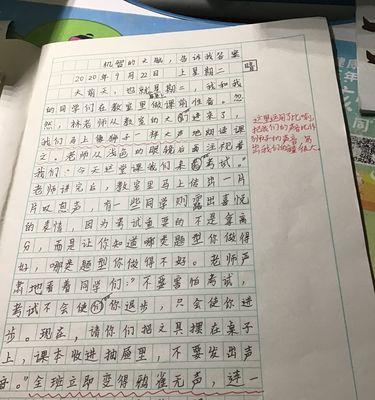 机智的大脑，告诉我答案
2020年9月22日 上星期二 晴
大前天，也就星期二，我和我
的同学们在教室里做课前准备。忽
然，林老师从教室的大门进来了，
我们马上像狮子一样大声地朗读课
文，老师从浅色的眼镜后面注视着
我们：“今天这里课我们来 考试。”
老师讲完后，教室里马上传出一片
片叹息声，有一些同学则露出喜悦
的表情，因为考试重要的不是拿高
分，而是让你知道哪类题型你做得
好，哪类题型你做得不好。老师严
肃地看着同学们：“不要害怕考试，
考试不会使 你退步，只会使你进
步。现在，请你们把文具摆在桌子
上，课本收进抽屉里，不要发出声
音。”全班立即变得鸦雀无声，连一
这里运用了比喻，
把我们的声音比作
狮子的声音，写
出我们的 很大。
健康